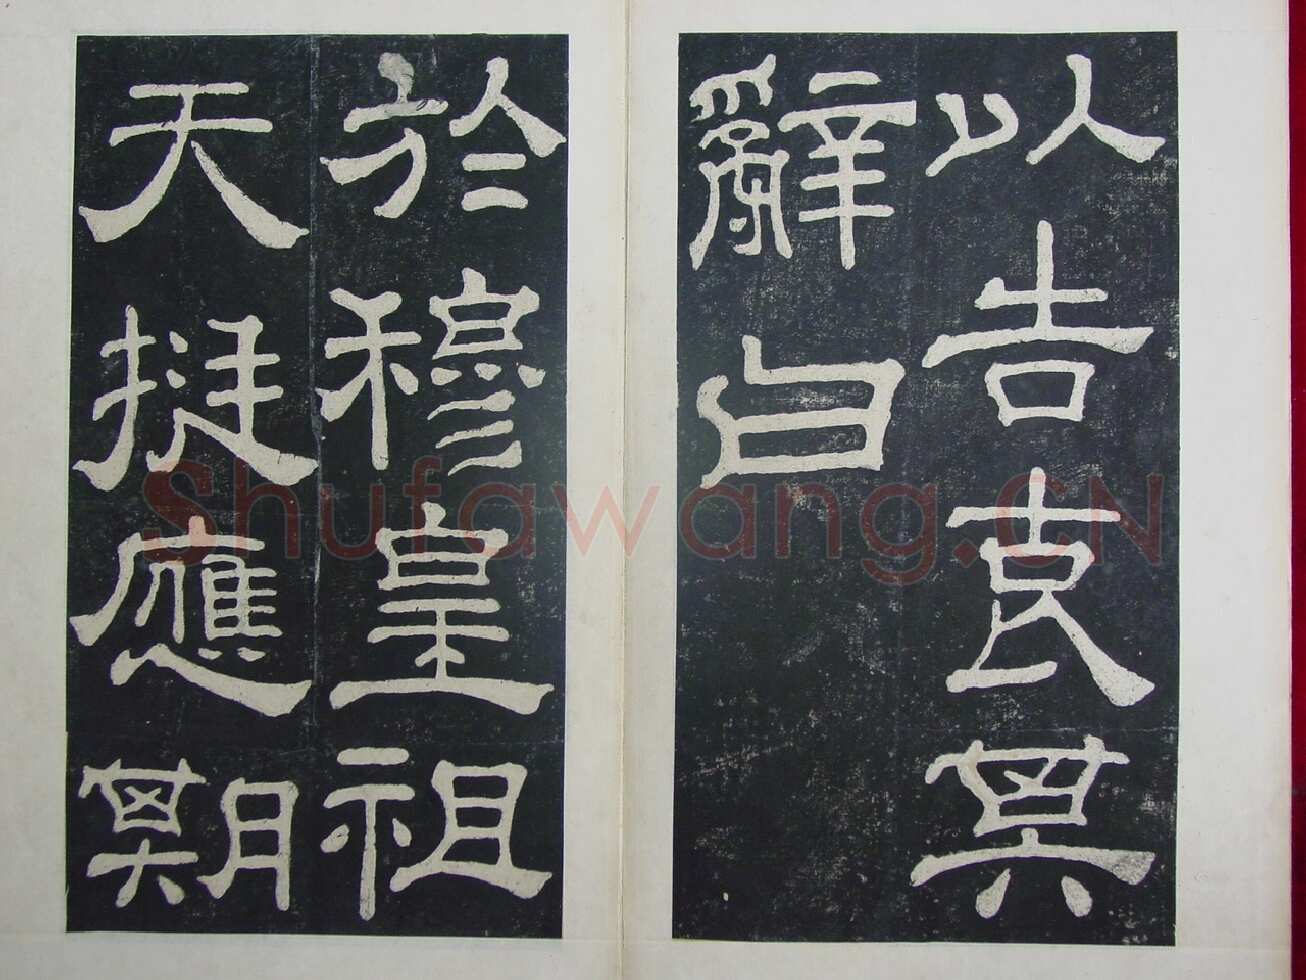 以告哀其
辭曰
於穆皇祖
天挺應期
Shufawang.CN